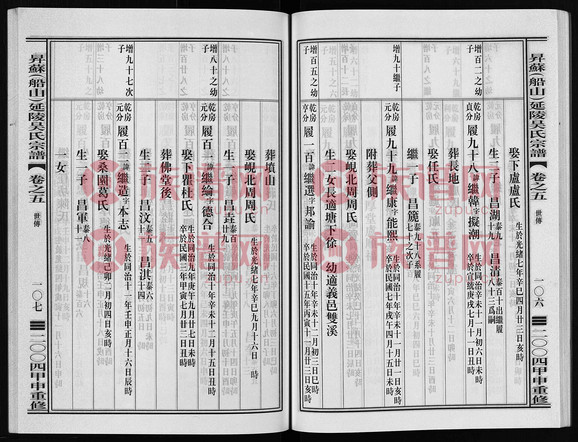 昇蘇(船山)延陵吳氏宗譜
卷之五
世傳
一〇六
二〇〇四甲申重修
娶下盧盧氏
生於光緒七年辛巳四月廿三日亥時
生二子 昌湖 昌清
增百二之幼子
乾房貞分 履九十八諱繼韓字擬潮
生於同治十年辛未十一月初六日未時
卒於宣統
葬長地
娶任氏
繼一子 昌篪
增九十繼子
乾房元分 履九十九諱繼康字能熙
生於同治十年辛未十一月廿一日亥時
卒於民國七年戊午四月十五日未時
附葬父側
娶峴北周周氏
生於同治十年辛未十二月初三日巳時
生二女 長適塘下徐 幼適義邑雙溪
增百五之幼子
乾房亨分 履一百諱繼選字邦諭
卒於民國十五年丙寅十一月初三日亥時
葬墳山
娶峴北周周氏
生於光緒七年辛巳九月十六日 時
生一子 昌垚
增八十之幼子
乾房元分 履百一諱繼綸字德合
生於同治十年辛未十二月十五日丑時
卒於民國三年甲寅七月廿八日丑時
娶下瞿杜氏
葬佛堂後
生二子 昌汶 昌淇
增九十七次子
乾房元分 履百二諱繼造字本志
生於同治十一年壬申正月十六日辰時
娶桑園葛氏
生於光緒五年己卯二月初四日亥時
生三子 昌軍
一女
昇蘇(船山)延陵吳氏宗譜
卷之五
世傳
一〇七
二〇〇四甲申重修
族譜网
zup